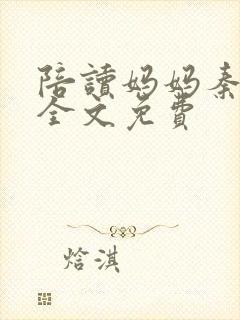 陪讀媽媽秦
全文免費
焓淇